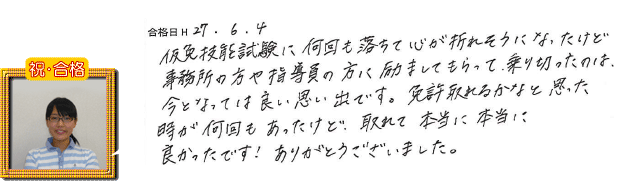 祝・合格
合格日 H 27.6.4
仮免技能試験に何回も落ちて心が折れそうになったけど
事務所の方や指導員の方に励ましてもらって、乗り切ったのは、
今となっては良い思い出です。免許取れるかなと思った
時が何回もあったけど、取れて本当に本当に
良かったです！ありがとうございました。